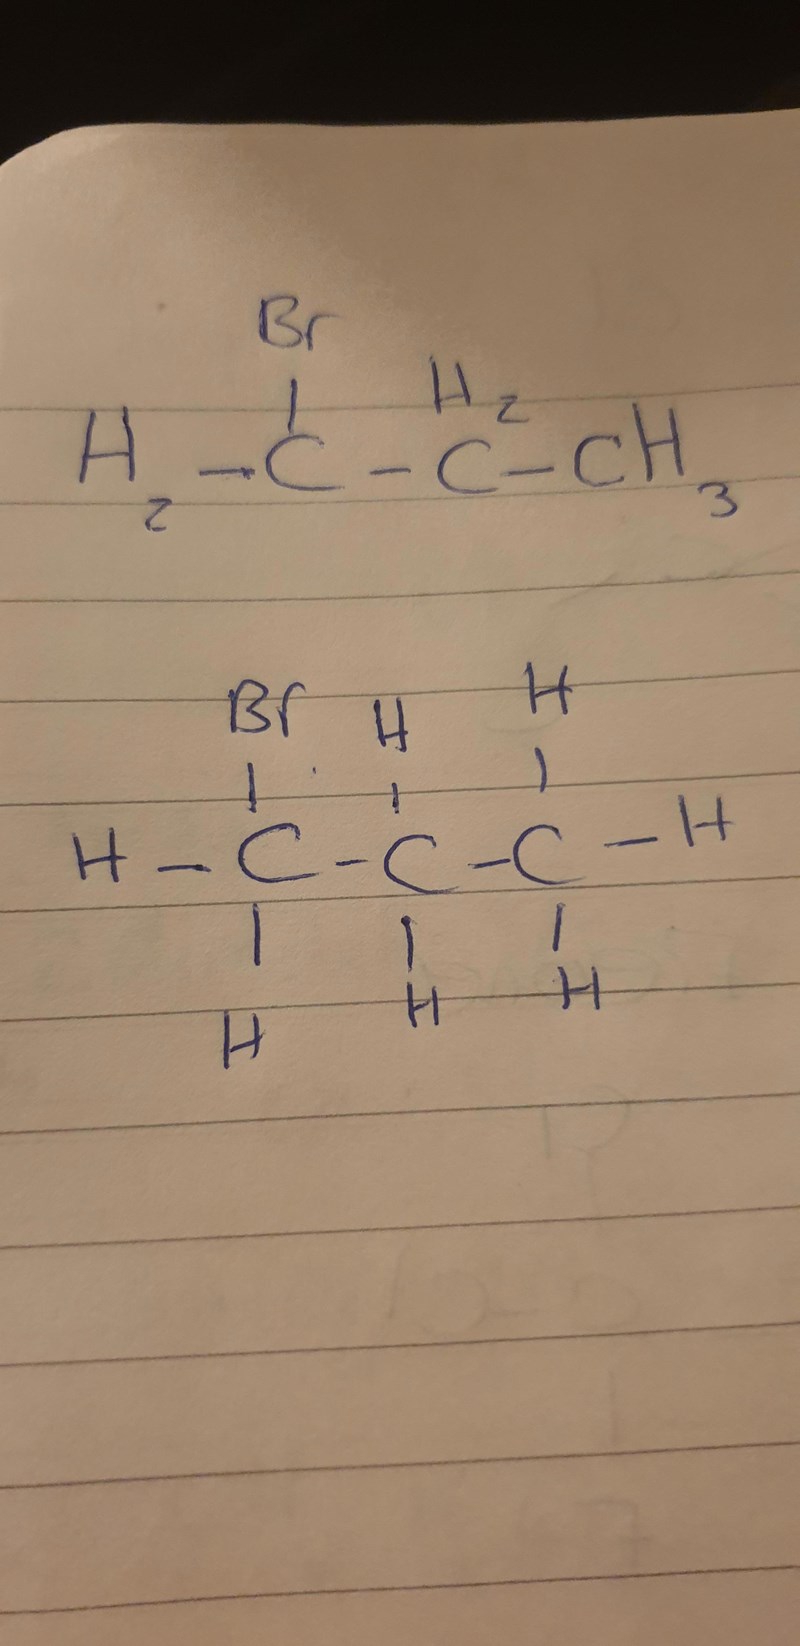 Br
H2
H2 - C - C - CH3
Br H H
H - C - C - C - H
H H H